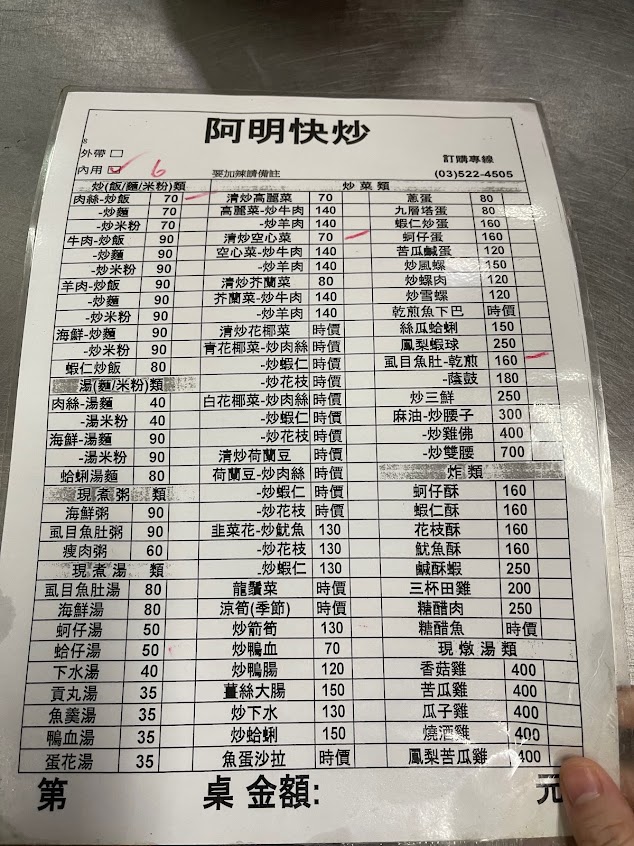 阿明快炒
8
外帶 □
內用 ☑ 6
要加辣請備註
訂購專線
(03)522-4505
炒(飯/麵/米粉)類 炒菜類
肉絲-炒飯 70 清炒高麗菜 70 蔥蛋 80
-炒麵 70 高麗菜-炒牛肉 140 九層塔蛋 80
-炒米粉 70 -炒羊肉 140 蝦仁炒蛋 160
牛肉-炒飯 90 清炒空心菜 70 蚵仔蛋 160
-炒麵 90 空心菜-炒牛肉 140 苦瓜鹹蛋 120
-炒米粉 90 -炒羊肉 140 炒風螺 150
羊肉-炒飯 90 清炒芥蘭菜 80 炒螺肉 120
-炒麵 90 芥蘭菜-炒牛肉 140 炒雪螺 120
-炒米粉 90 -炒羊肉 140 乾煎魚下巴 時價
海鮮-炒麵 90 清炒花椰菜 時價 絲瓜蛤蜊 150
-炒米粉 90 青花椰菜-炒肉絲 時價 鳳梨蝦球 250
蝦仁炒飯 80 -炒蝦仁 時價 虱目魚肚-乾煎 160
湯(麵/米粉)類 -炒花枝 時價 -蔭鼓 180
肉絲-湯麵 40 白花椰菜-炒肉絲 時價 炒三鮮 250
-湯米粉 40 -炒蝦仁 時價 麻油-炒腰子 300
海鮮-湯麵 90 -炒花枝 時價 -炒雞佛 400
-湯米粉 90 清炒荷蘭豆 時價 -炒雙腰 700
蛤蜊湯麵 80 荷蘭豆-炒肉絲 時價 炸類
現煮粥 類 -炒蝦仁 時價 蚵仔酥 160
海鮮粥 90 -炒花枝 時價 蝦仁酥 160
虱目魚肚粥 90 韭菜花-炒魷魚 130 花枝酥 160
瘦肉粥 60 -炒花枝 130 魷魚酥 160
現煮湯 類 -炒蝦仁 130 鹹酥蝦 250
虱目魚肚湯 80 龍鬚菜 時價 三杯田雞 200
海鮮湯 80 涼筍(季節) 時價 糖醋肉 250
蚵仔湯 50 炒箭筍 130 糖醋魚 時價
蛤仔湯 50 炒鴨血 70 現燉湯類
下水湯 40 炒鴨腸 120 香菇雞 400
貢丸湯 35 薑絲大腸 150 苦瓜雞 400
魚羹湯 35 炒下水 130 瓜子雞 400
鴨血湯 35 炒蛤蜊 150 燒酒雞 400
蛋花湯 35 魚蛋沙拉 時價 鳳梨苦瓜雞 400
第 桌 金額: 元